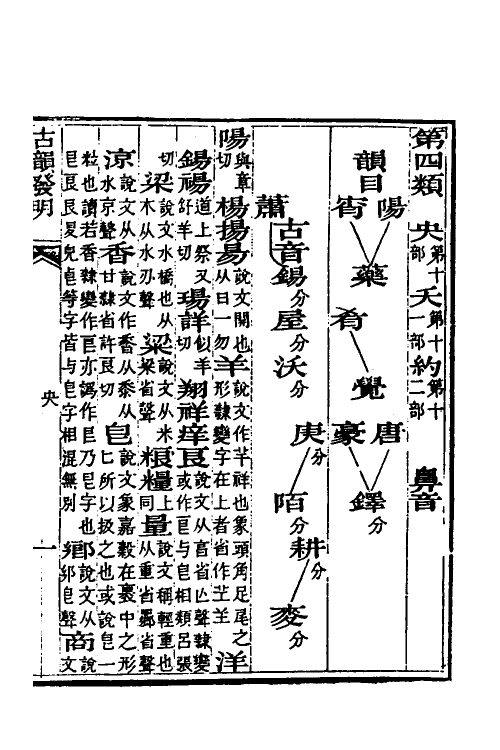 第四類　央第十部夭第十一部約第十二部　鼻音
韻目
陽　唐
宵　藥　肴　覺　豪　鐸分
蕭　古音　錫分　屋分　沃分
庚分　陌分　耕分　麥分
陽與章切楊揚昜說文開也从日一勿羊說文作𦍌祥也象頭角足尾之形隸變字在上者省作䒑𦍌洋
錫禓道上祭又舒羊切瑒詳似羊切翔祥痒䒑說文从亯省亾聲隸變或作㠯與皀相類呂張
切梁說文水橋也从木从水刅聲粱說文从米梁省聲粮糧同上量說文稱輕重也从重省曏省聲
涼說文从水京聲香說文作䅨从黍从甘隸省許良切皀說文象嘉穀在裹中之形匕所以扱之也或說皀一
粒也讀若香隸變作㠯亦譌作㠯乃皀字也鄉說文从𨙨皀聲商說文
字皆與皀字相混無別
古韻發明
央
一